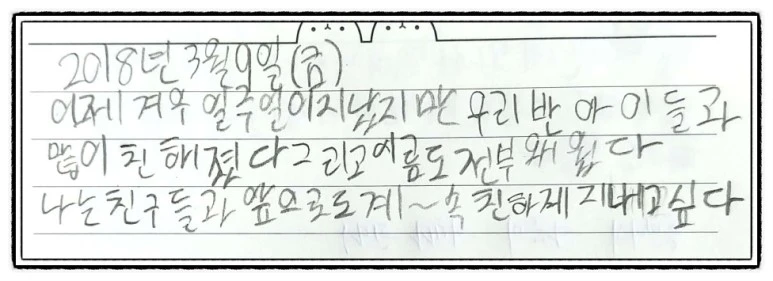 2018년 3월 9일(금)
이제 겨우 일주일이지났지만 우리 반 아이들과
많이 친해졌다그리고이름도전부왜웠다
나는친구들과 앞으로도계~속 친하게 지내고싶다